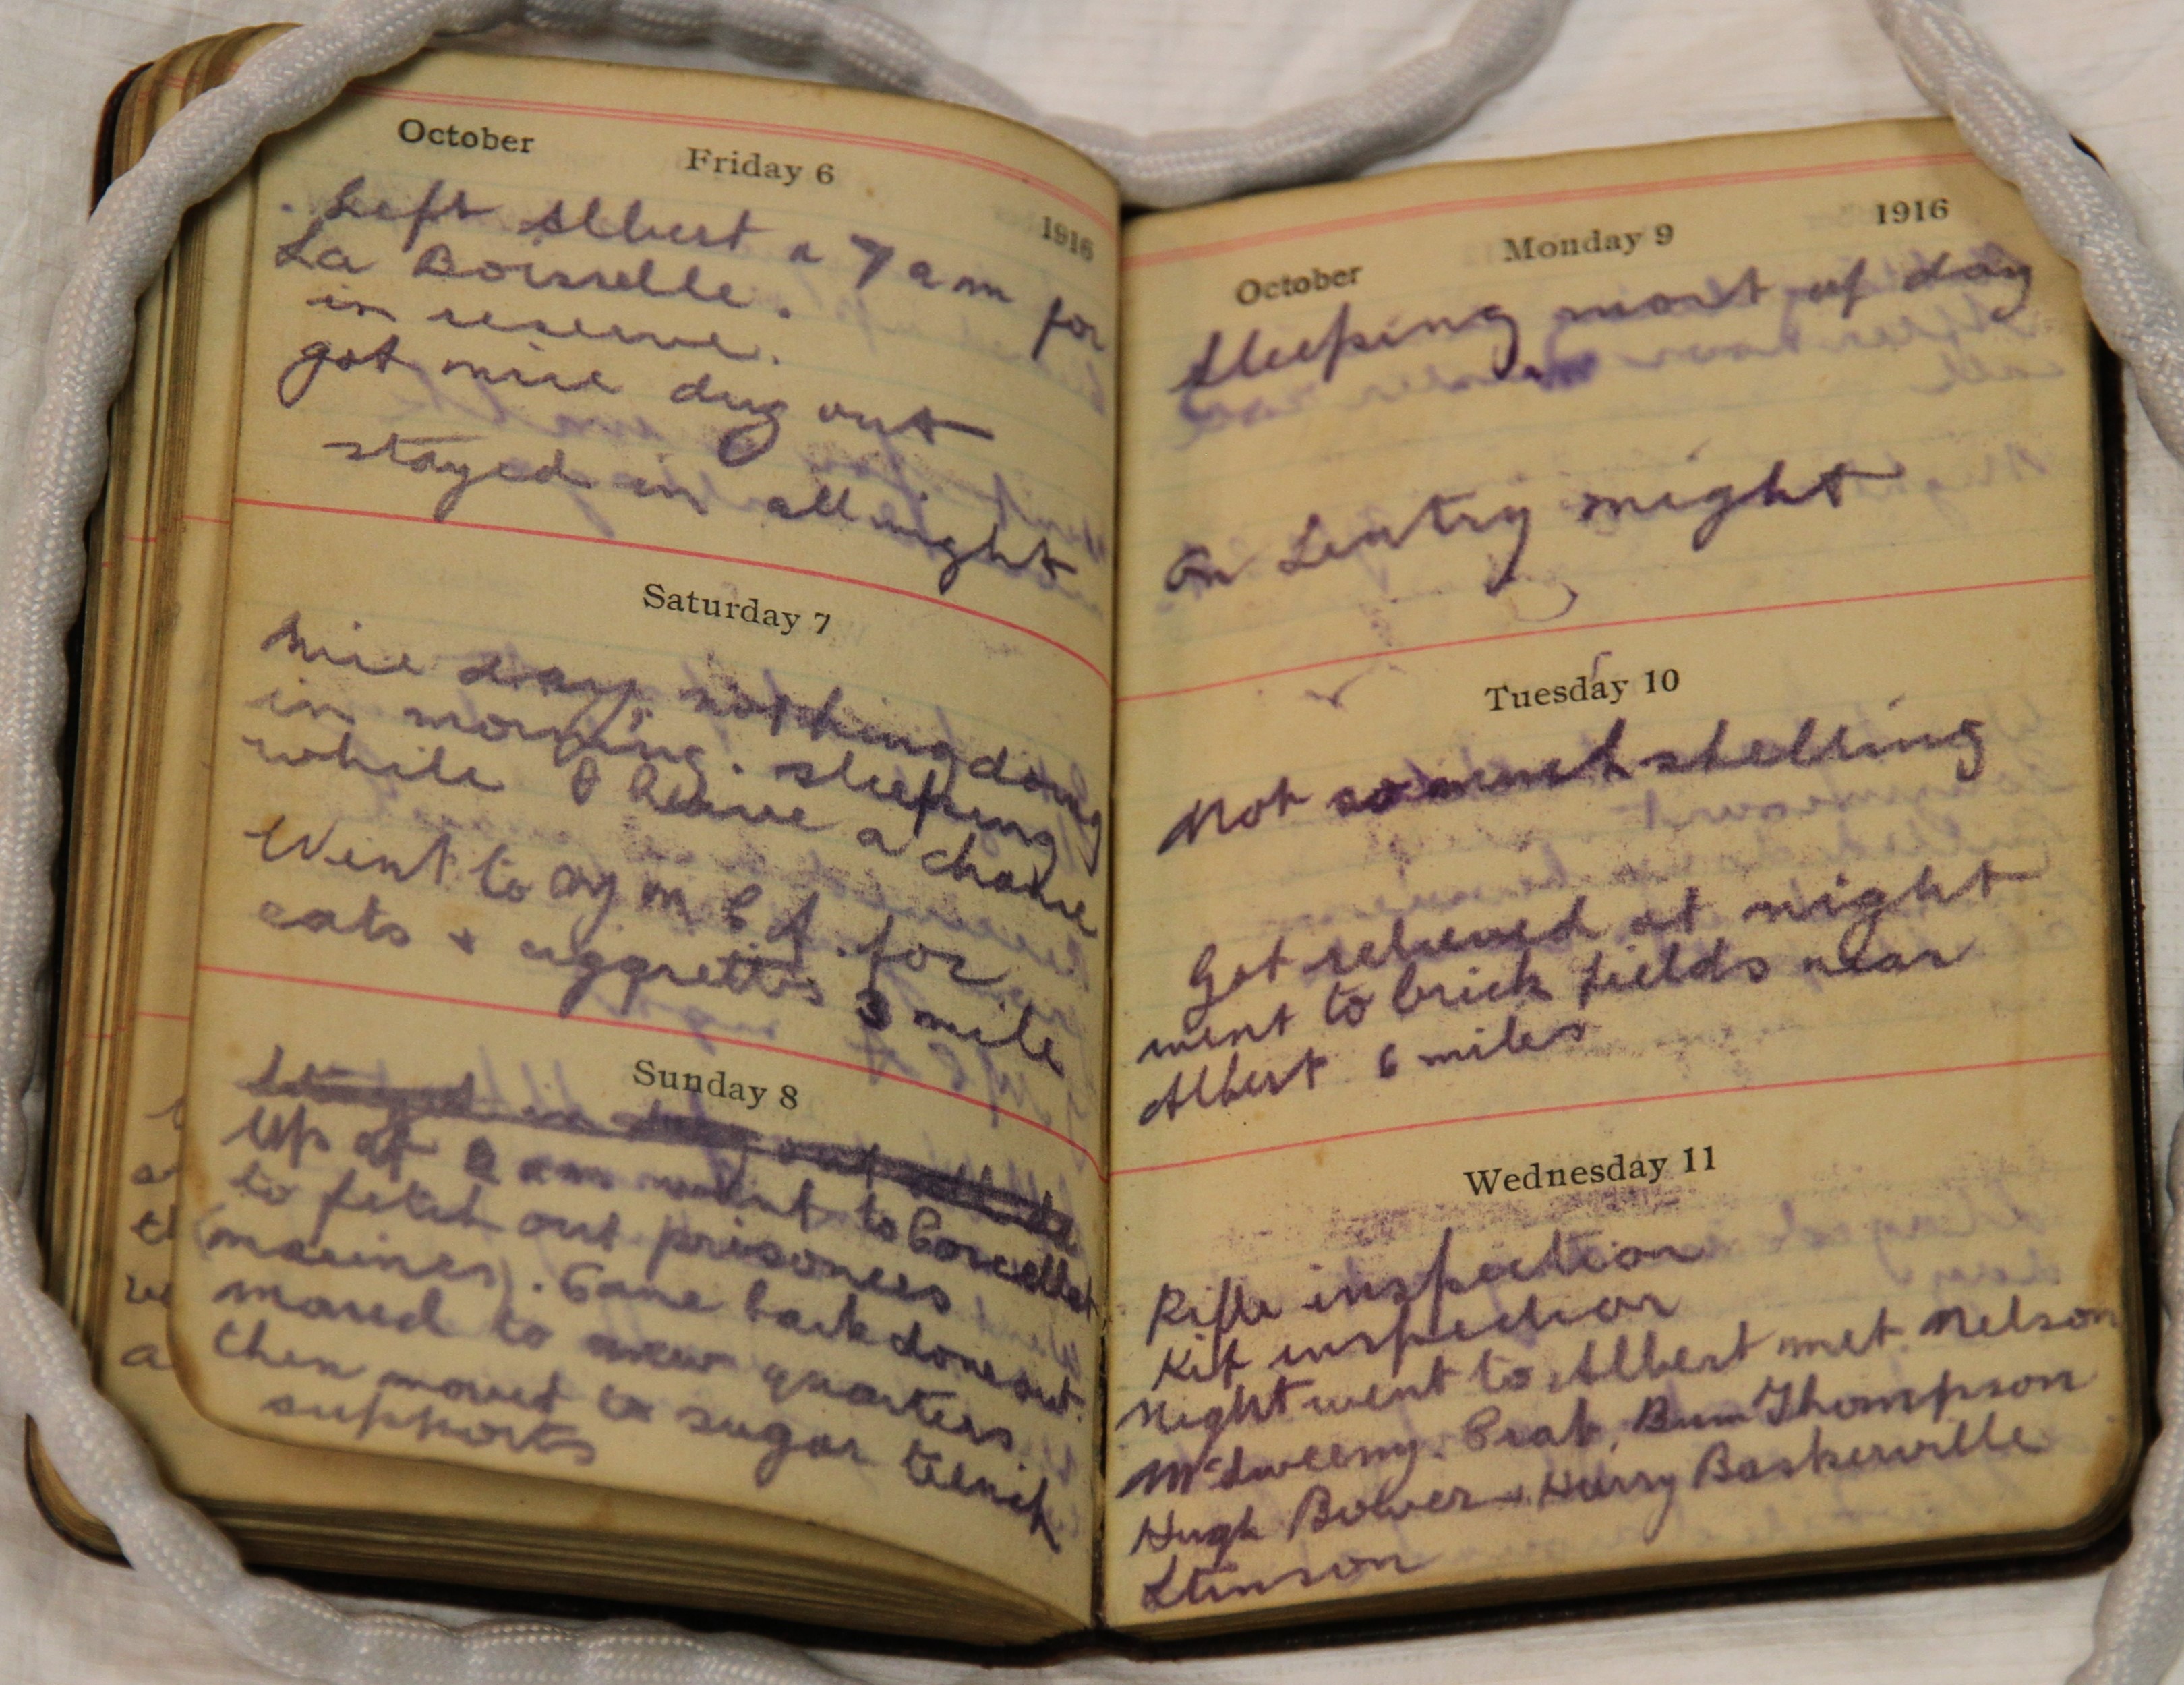 October
Friday 6
1916
Left Albert a 7 am for
La Boisselle.
in reserve.
got nice dug out
stayed in all night
Saturday 7
Nice day, nothing doing
in morning. sleeping
while I have a chance
Went to Y M C A. for
eats + ciggrettes 3 mile
Sunday 8
Stayed in dug out all
Up at 2 am went to Corcellet
to fetch out prisoners
(marines). Came back done out.
moved to new quarters.
then moved to sugar trench
supports
October
Monday 9
1916
Sleeping most of day
On Sentry night
Tuesday 10
Not so much shelling
Got relieved at night
went to brick fields near
Albert 6 miles
Wednesday 11
Rifle inspection
Kit inspection
Night went to Albert met. Nelson
McSweeny. Crab, Bum Thompson
Hugh Bower + Harry Baskerville
Stinson